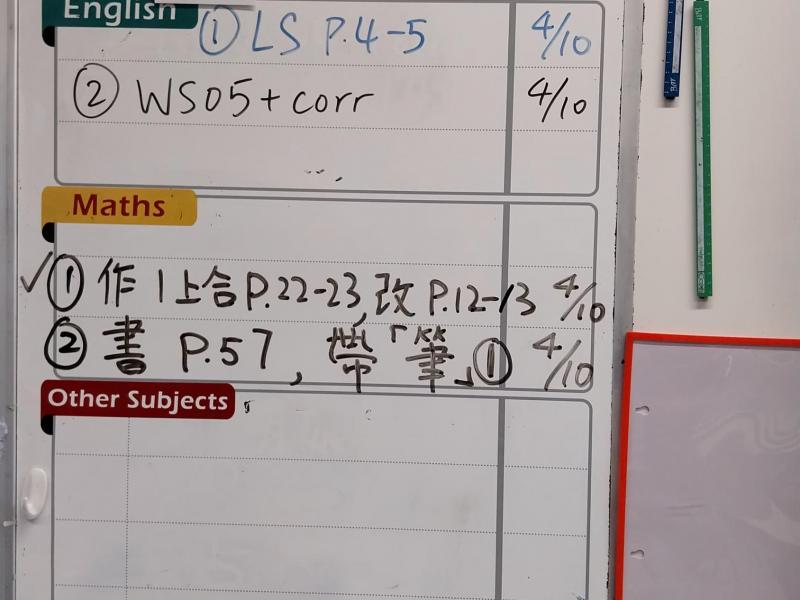 English
① LS P.4-5 4/10
② WS05+corr 4/10
Maths
✓① 作1上合P.22-23,改P.12-13 4/10
② 書 P.57, 帶「筆」① 4/10
Other Subjects